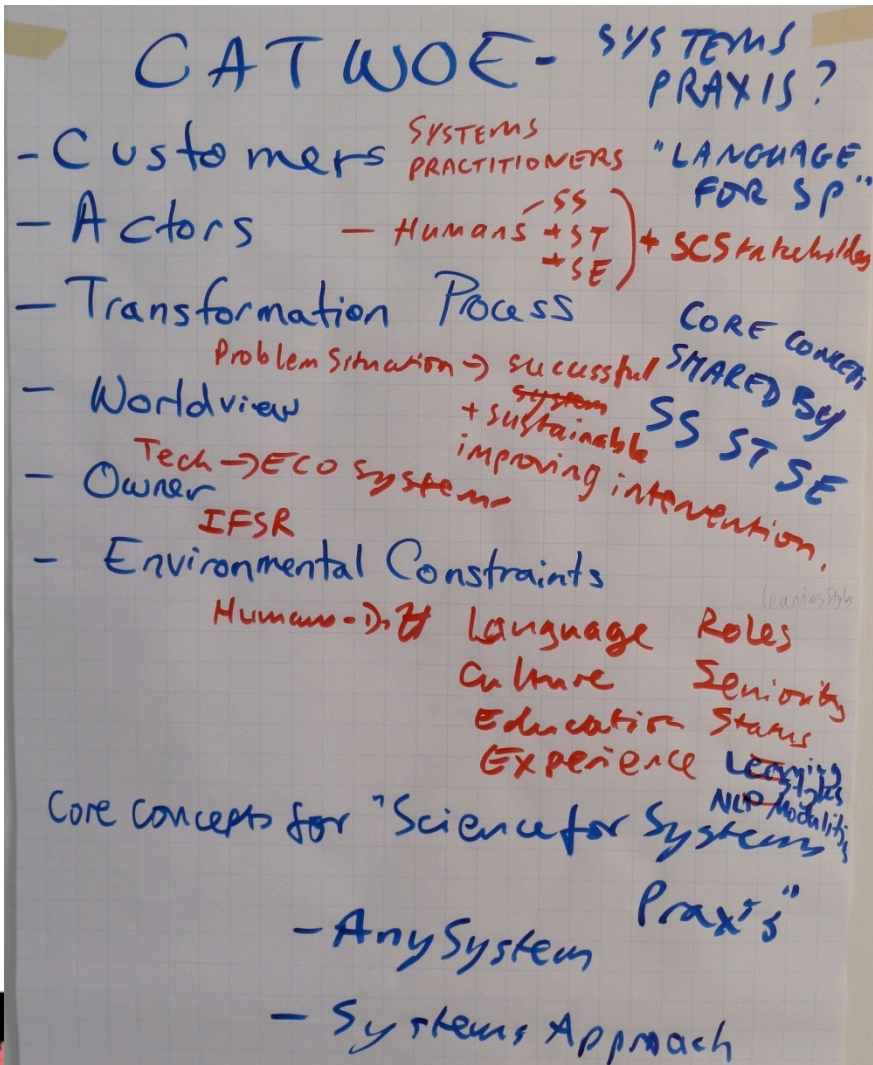 CATWOE - SYSTEMS
PRAXIS?
- Customers SYSTEMS
PRACTITIONERS "LANGUAGE
FOR SP"
- Actors - Humans - SS
+ ST
+ SE ) + SC Stakeholders
- Transformation Process
CORE CONCEPTS
SHARED BY
SS ST SE
Problem Situation → successful
system
+ sustainable
improving intervention.
- Worldview
Tech → ECO Systems
- Owner
IFSR
- Environmental Constraints
Learning Style
Humans - Diff Language Roles
Culture Seniority
Education Status
Experience Learning
Styles
NLP Modalities
Core concepts for "Science for Systems
Praxis"
- Any System
- Systems Approach